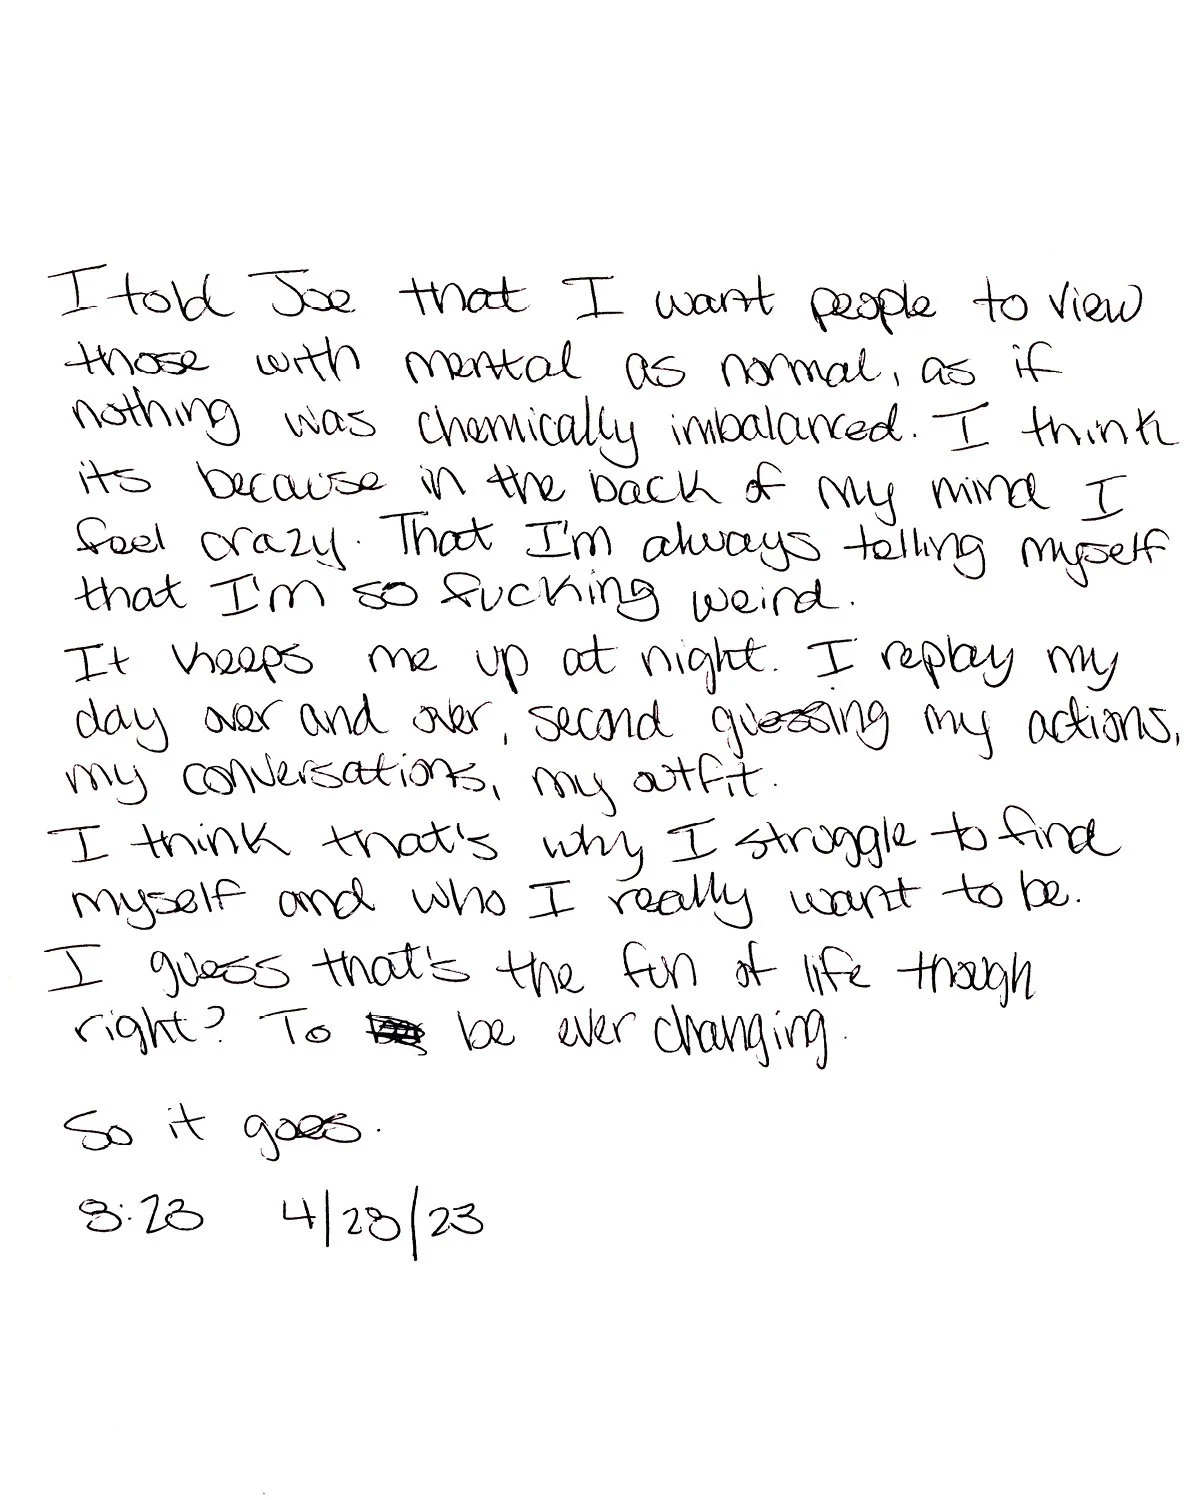 I told Joe that I want people to view
those with mental as normal, as if
nothing was chemically imbalanced. I think
its because in the back of my mind I
feel crazy. That I'm always telling myself
that I'm so fucking weird.
It keeps me up at night. I replay my
day over and over, second guessing my actions,
my conversations, my outfit.
I think that's why I struggle to find
myself and who I really want to be.
I guess that's the fun of life though
right? To be ever changing.
So it goes.
8:28 4/28/23